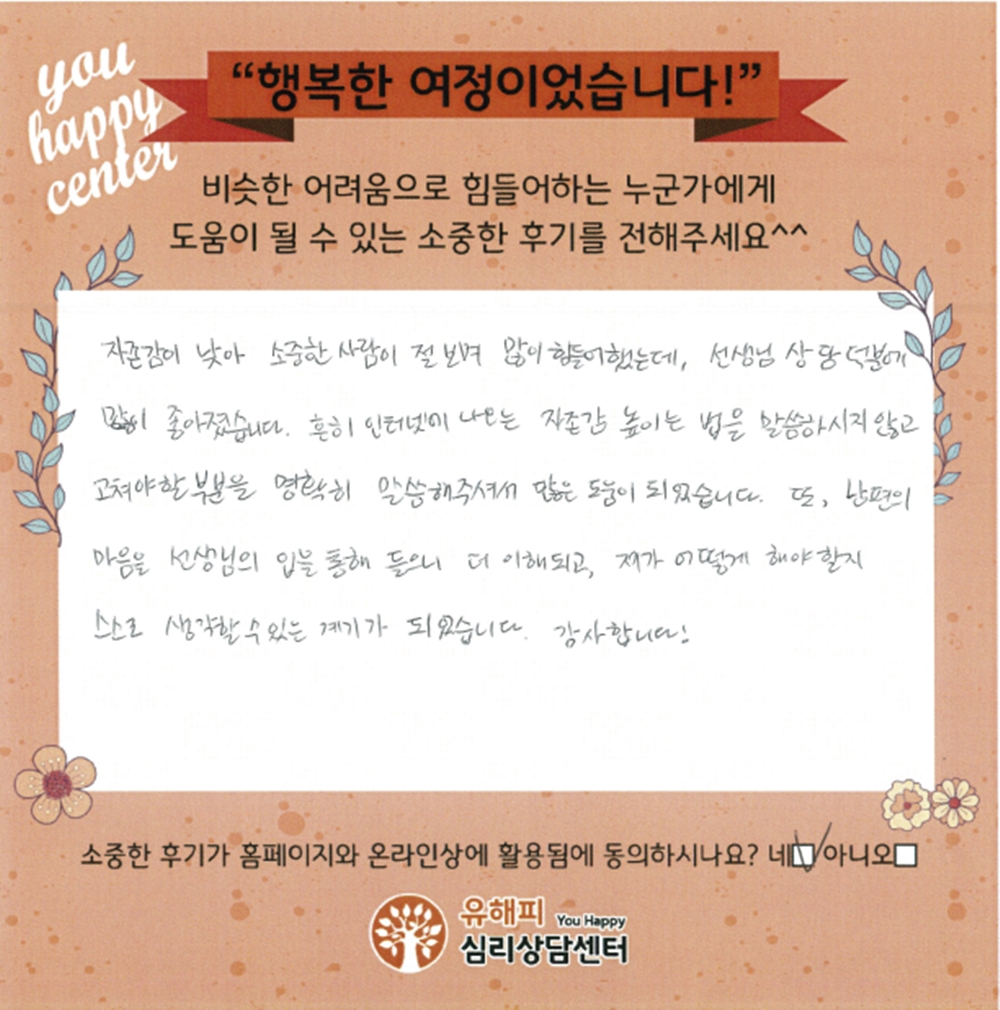 you
happy
center
“행복한 여정이었습니다!”
비슷한 어려움으로 힘들어하는 누군가에게
도움이 될 수 있는 소중한 후기를 전해주세요^^
자존감이 낮아 소중한 사람이 절 보며 많이 힘들어했는데, 선생님 상담 덕분에
많이 좋아졌습니다. 흔히 인터넷에 나오는 자존감 높이는 법을 말씀하시지 않고
고쳐야할 부분을 명확히 말씀해주셔서 많은 도움이 되었습니다. 또, 남편의
마음을 선생님의 입을 통해 들으니 더 이해되고, 제가 어떻게 해야 할지
스스로 생각할 수 있는 계기가 되었습니다. 감사합니다!
소중한 후기가 홈페이지와 온라인상에 활용됨에 동의하시나요? 네☑ 아니오□
유해피 You Happy
심리상담센터